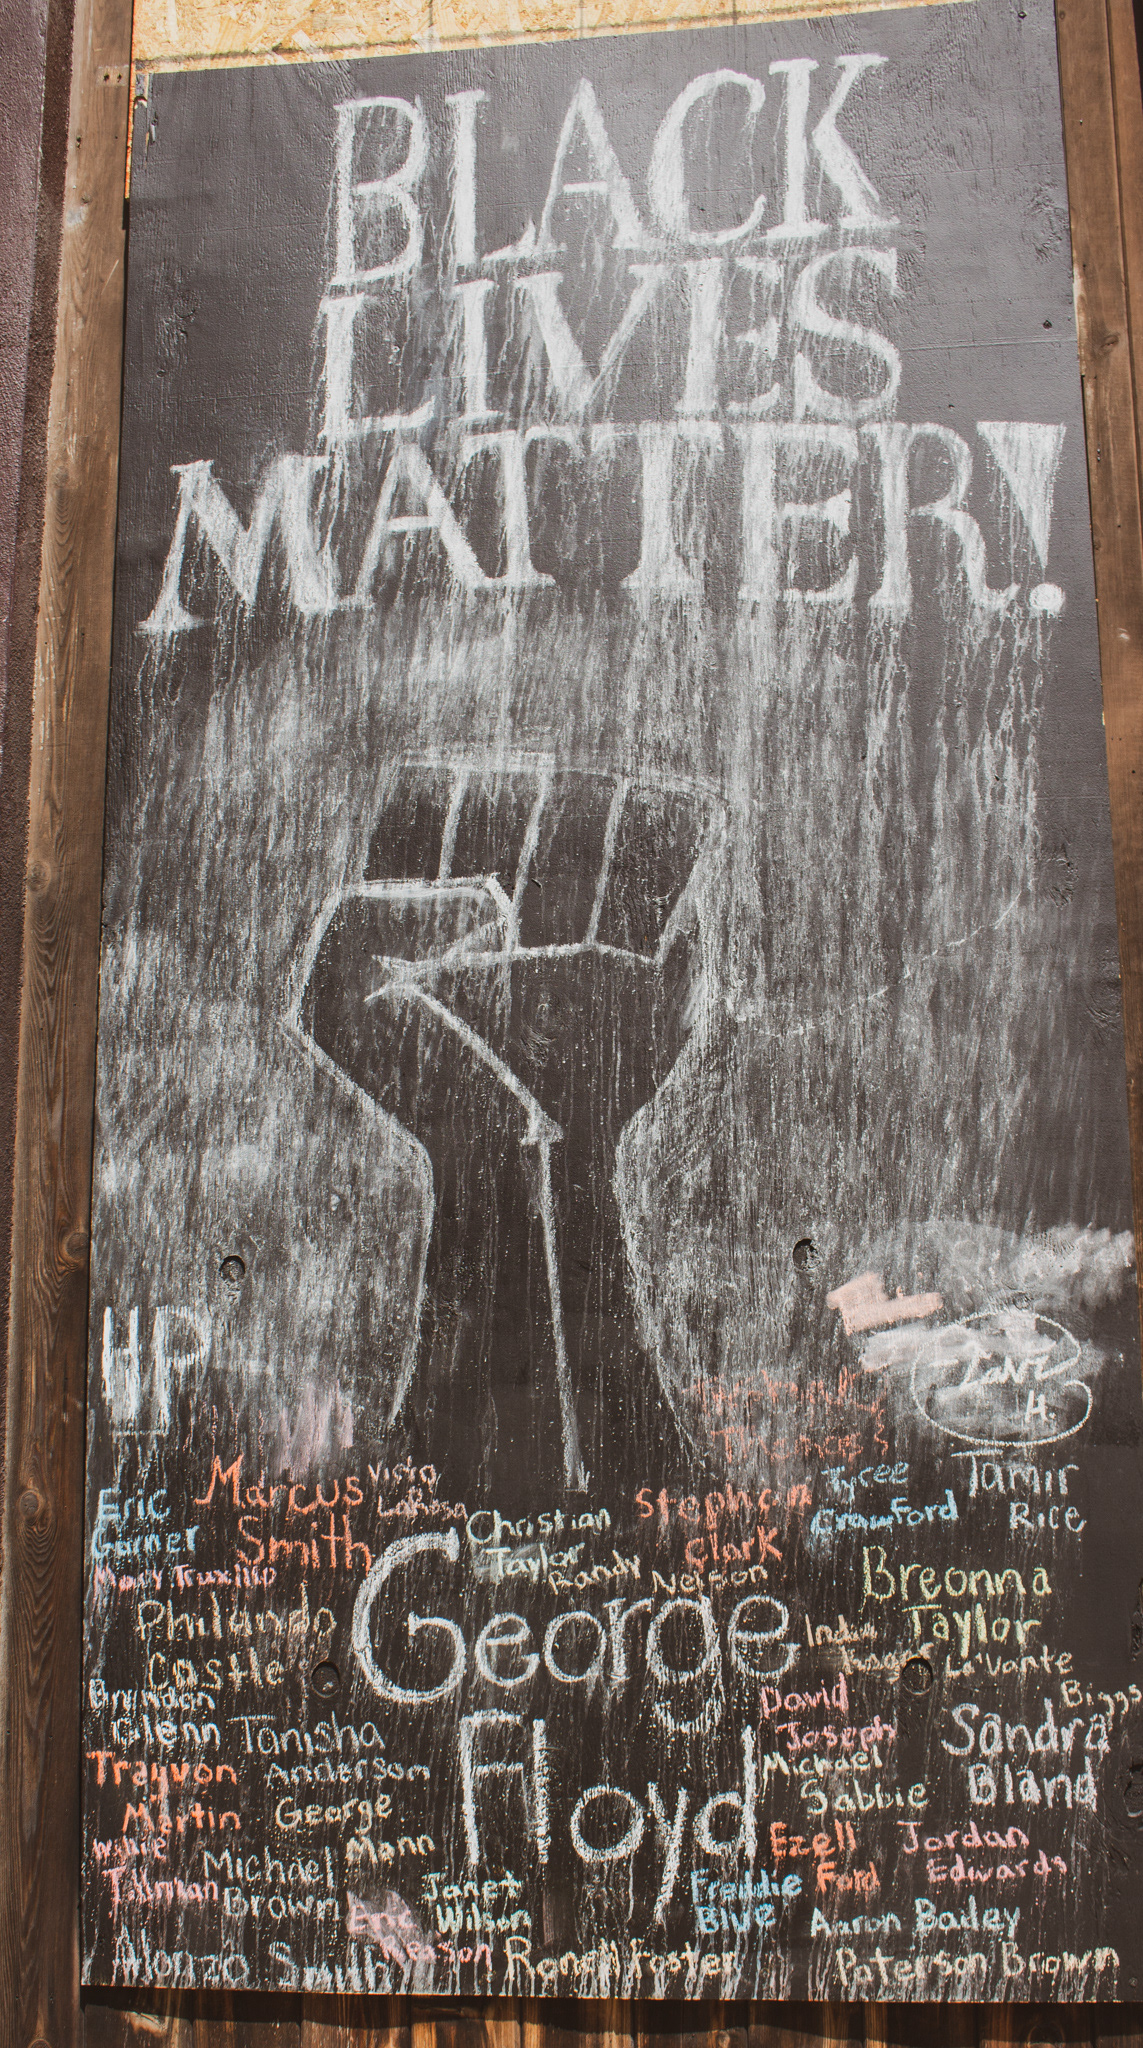 BLACK
LIVES
MATTER!
HP
LANI
H.
Thomas
Eric
Garner
Marcus
Smith
Vista
Christian
Taylor
Stephon
Clark
Tyree
Crawford
Tamir
Rice
Mary Truxillo
Randy Nelson
Breonna
Taylor
Philando
Castle
George
Floyd
India
Kager
La'Vante
Biggs
Brendan
Glenn
Tanisha
Anderson
David
Joseph
Sandra
Bland
Trayvon
Martin
George
Mann
Michael
Sabbie
Willie
Tillman
Michael
Brown
Janet
Wilson
Ezell
Ford
Jordan
Edwards
Freddie
Blue
Aaron Bailey
Alonzo Smith
Eric
Reason
Ronell Foster
Paterson Brown